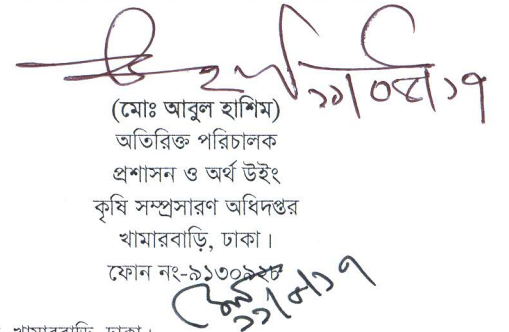 ১১/০৪/১৭
(মোঃ আবুল হাশিম)
অতিরিক্ত পরিচালক
প্রশাসন ও অর্থ উইং
কৃষি সম্প্রসারণ অধিদপ্তর
খামারবাড়ি, ঢাকা।
ফোন নং-৯১৩০৯২৮
খামারবাড়ি, ঢাকা।